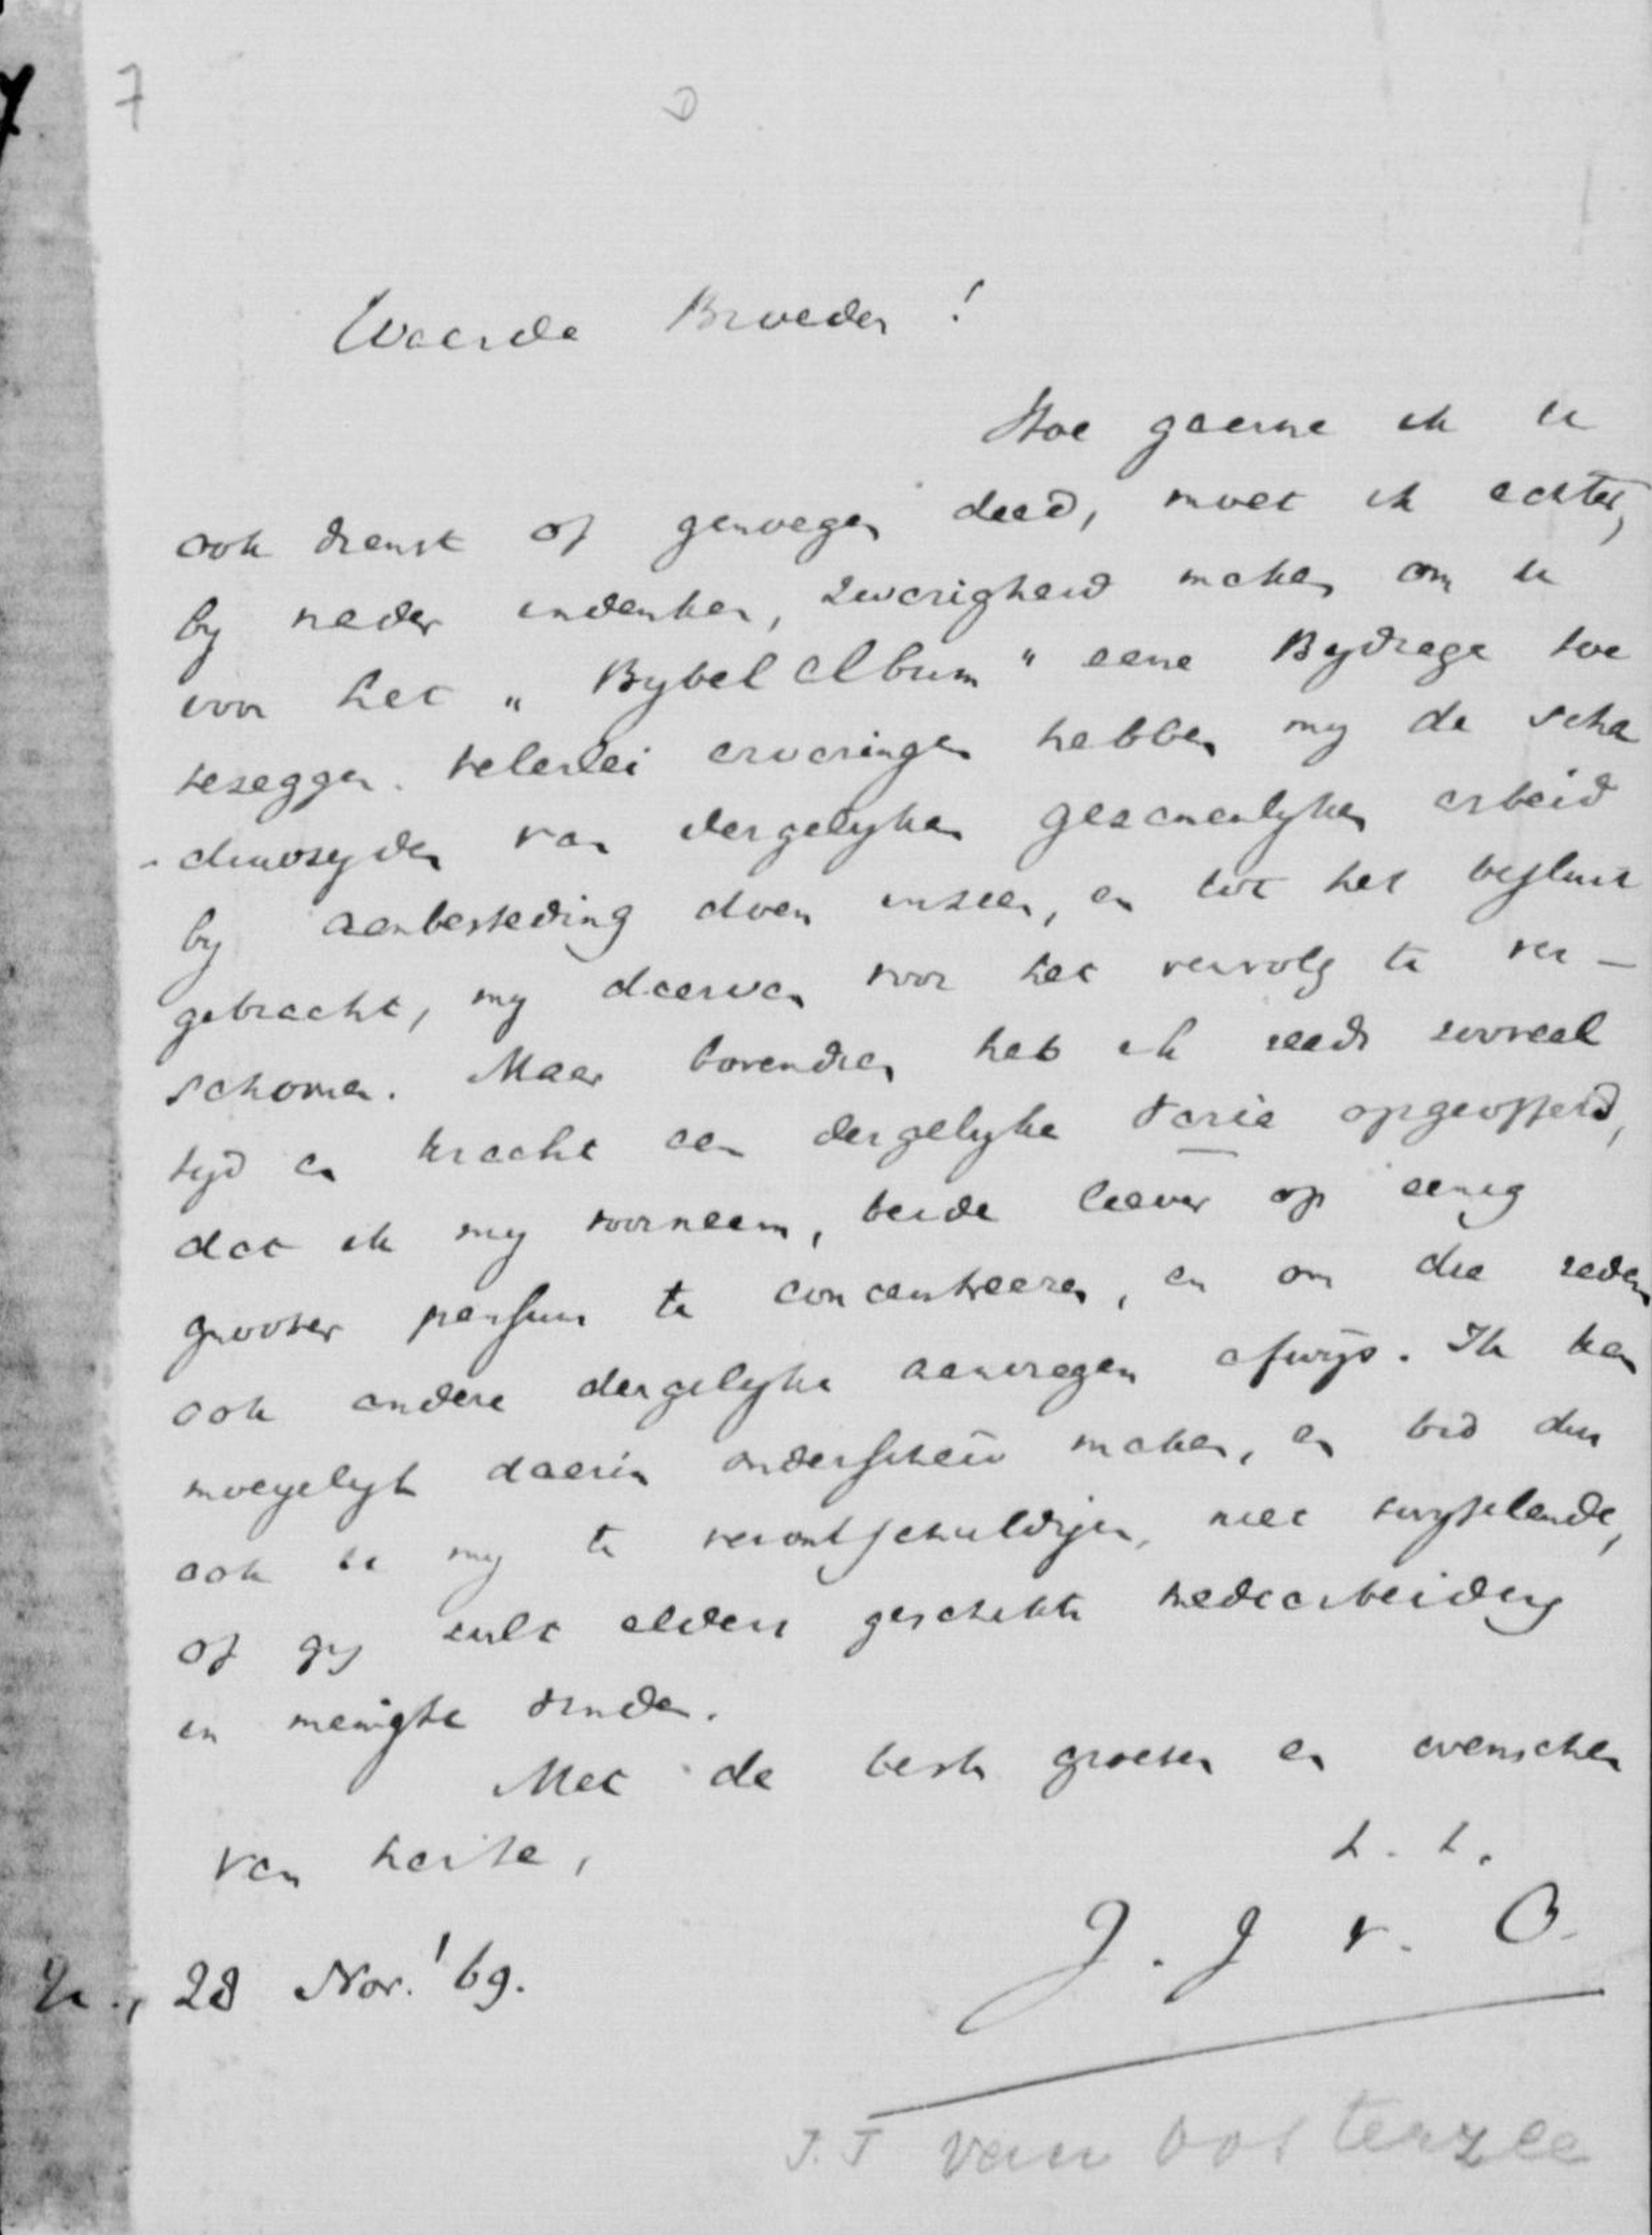 7
Waarde Broeder!
Hoe gaerne ik U
ook dienst of genoegen deed, moet ik echter,
by nader indenken, zwarigheid maken om U
voor het „Bybel Album" eene Bydrage toe
tezeggen. Velerlei ervaringen hebben my de scha
-duwzyden van dergelyken gezamenlyken arbeid
by aanbesteding doen inzien, en tot het besluit
gebracht, my daarvan voor het vervolg te ver-
schonen. Maar bovendien heb ik reeds zooveel
tyd en kracht aan dergelyke varia opgeofferd,
dat ik my voorneem, beide liever op eenig
grooter pensum te concentreeren, en om die reden
ook andere dergelyke aanvragen afwijs. Ik kan
moeyelyk daarin onderscheid maken, en bid dus
ook U my te verontschuldigen, niet twyfelende,
of gy zult elders geschikte medearbeiders
in menigte vinden.
Met de beste groeten en wenschen
van harte,
t. t.
J. J v. O.
U., 28 Nov. '69.
J.J van Oosterzee